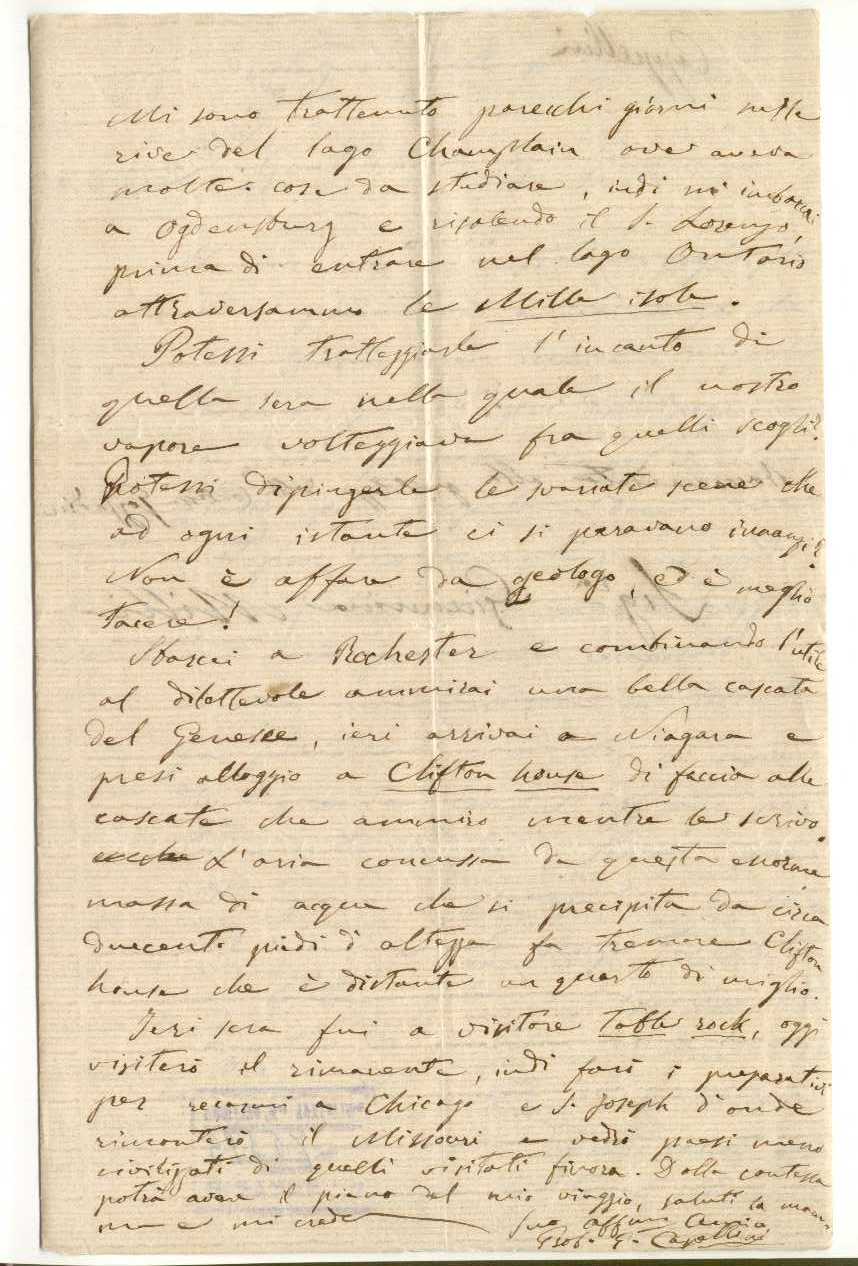 Mi sono trattenuto parecchi giorni sulle
rive del lago Champlain ove aveva
molte cose da studiare, indi mi imbarcai
a Ogdensburg e risalendo il S. Lorenzo,
prima di entrare nel lago Ontario
attraversammo le Mille isole.
Potessi tratteggiarle l'incanto di
quella sera nella quale il nostro
vapore volteggiava fra quelli scogli!
Potessi dipingerle le svariate scene che
ad ogni istante ci si paravano innanzi!
Non è affare da geologo, ed è meglio
tacere!
Sbarcai a Rochester e combinando l'utile
al dilettevole ammirai una bella cascata
del Genesee, ieri arrivai a Niagara e
presi alloggio a Clifton house di faccia alle
cascate che ammiro mentre le scrivo.
L'aria concussa da questa enorme
massa di acqua che si precipita da circa
duecento piedi d'altezza fa tremare Clifton
house che è distante un quarto di miglio.
Ieri sera fui a visitare table rock, oggi
visiterò il rimanente, indi farò i preparativi
per recarmi a Chicago e S. Joseph d'onde
rimonterò il Missouri e vedrò paesi meno
civilizzati di quelli visitati finora. Dalla contessa
potrà avere il piano del mio viaggio, saluti la mam-
ma e mi creda
Suo affmo Amico
Prof. G. Capellini